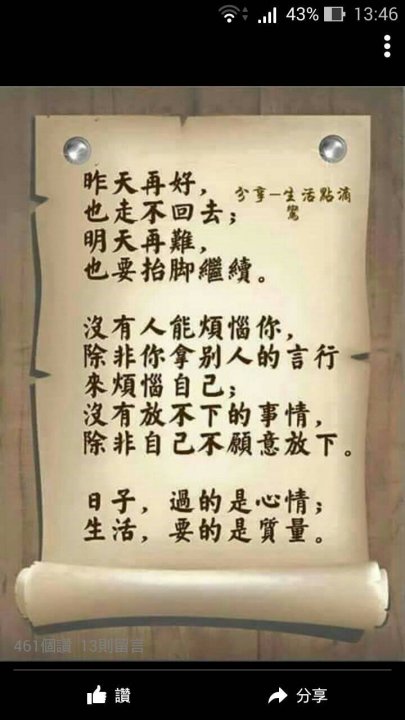 43% 13:46
昨天再好，
分享—生活點滴
也走不回去；
明天再難，
也要抬脚繼續。
沒有人能煩惱你，
除非你拿别人的言行
來煩惱自己；
沒有放不下的事情，
除非自己不願意放下。
日子，過的是心情；
生活，要的是質量。
461個讚 13則留言
讚 分享